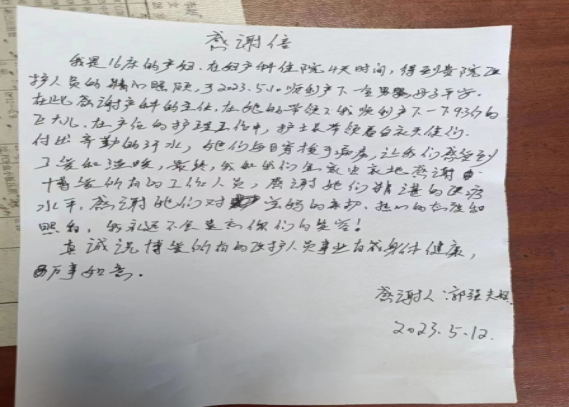 感谢信
我是16床的产妇.在妇产科住院4天时间,得到贵院医
护人员的精心照顾,于2023.5.10顺利产下一男婴母子平安.
在此感谢产科的主任.在她的带领下我顺利产下一个93斤的
大儿.在产后的护理工作中,护士长带领着白衣天使们.
付出辛勤的汗水,她们每日穿梭于病房,让我们感受到
了爱和温暖,最终,我和家人们怎衷地感谢
博爱所有的工作人员,感谢她们精湛的医疗
水平,感谢她们对宝妈的爱护.热心的
照顾,我永远不会忘记你们的笑容!
真诚祝博爱所有的医护人员事业有成身体健康,
万事如意.
感谢人:郭强夫妇
2023.5.12.